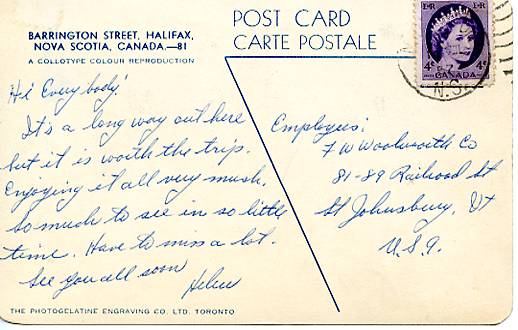 BARRINGTON STREET, HALIFAX,
NOVA SCOTIA, CANADA.—81
A COLLOTYPE COLOUR REPRODUCTION
POST CARD
CARTE POSTALE
E·R
E·R
4¢
4¢
CANADA
N.S.
Hi Everybody!
It's a long way out here
but it is worth the trip.
Enjoying it all very much.
So much to see in so little
time. Have to miss a lot.
See you all soon
Helen
Employees:
F W Woolworth Co
81-89 Railroad St
St Johnsbury, Vt
U.S.A.
THE PHOTOGELATINE ENGRAVING CO. LTD. TORONTO